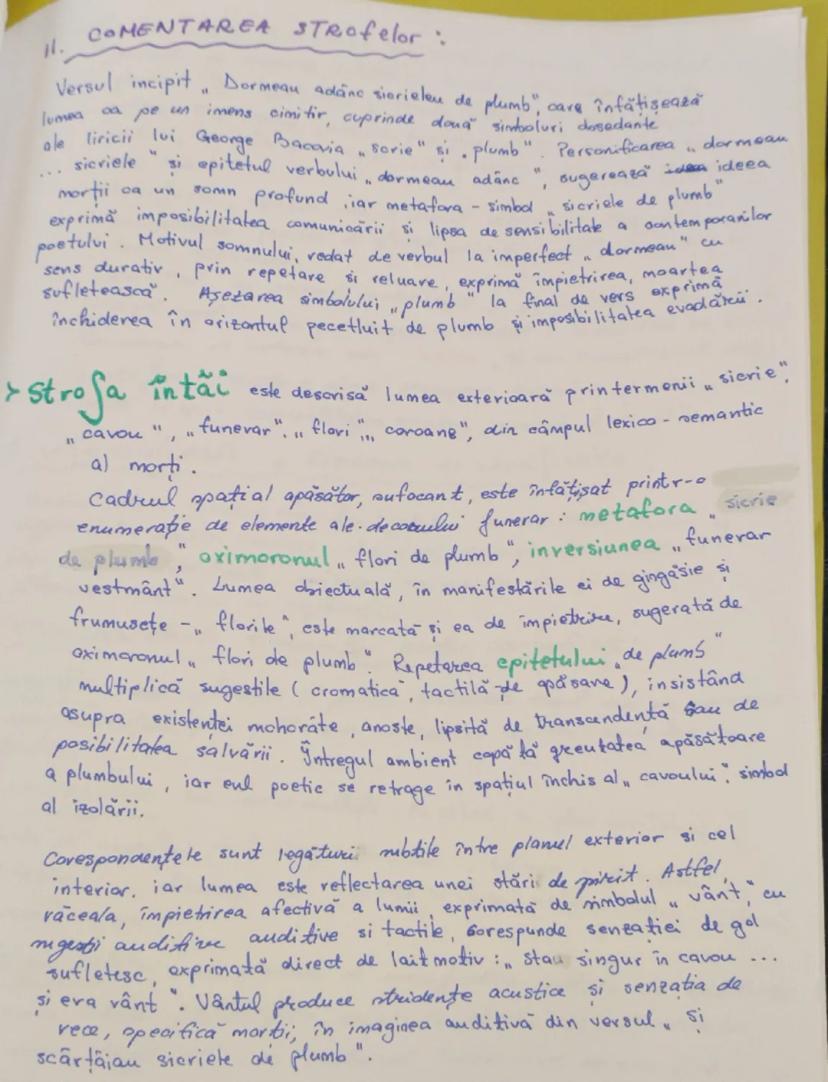 11. COMENTAREA STROFELOR :
Versul incipit „ Dormeau adânc sicrieleu de plumb", care înfățișează
lumea ca pe un imens cimitir, cuprinde două simboluri dosedante
ale liricii lui George Bacovia „scrie" și „plumb". Personificarea „ dormeau
... sicriele " și epitetul verbului „ dormeau adânc ", sugerează ideea
morții ca un somn profund, iar metafora - simbol „ sicriele de plumb"
exprimă imposibilitatea comunicării și lipsa de sensibilitate a contemporanilor
poetului. Motivul somnului, redat de verbul la imperfect „ dormeau " cu
sens durativ, prin repetare și reluare, exprimă împietrirea, moartea
sufletească. Așezarea simbolului „ plumb " la final de vers exprimă
închiderea în orizontul pecetluit de plumb și imposibilitatea evadării.
> Strofa întâi este descrisă lumea exterioară prin termenii „ sicrie",
„ cavou ", „ funerar", „ flori", „ coroane", din câmpul lexico - semantic
al morți.
Cadrul spațial apăsător, sufocant, este înfățișat printr-o
enumerație de elemente ale decorului funerar : metafora „ sicrie
de plumb", oximoronul „ flori de plumb", inversiunea „ funerar
vestmânt". Lumea obiectuală, în manifestările ei de gingășie și
frumusețe - „ florile", este marcată și ea de împietrire, sugerată de
oximoronul „ flori de plumb". Repetarea epitetului „de plumb"
multiplică sugestile ( cromatică, tactilă - de apăsare ), insistând
asupra existenței mohorâte, anoste, lipsită de transcendentă sau de
posibilitatea salvării. Întregul ambient capătă greutatea apăsătoare
a plumbului, iar eul poetic se retrage în spațiul închis al „ cavoului", simbol
al izolării.
Corespondențele sunt legături subtile între planul exterior si cel
interior, iar lumea este reflectarea unei stări de spirit. Astfel,
răceala, împietrirea afectivă a lumii, exprimată de simbolul „ vânt", cu
sugestii auditive auditive si tactile, corespunde senzației de gol
sufletesc, exprimată direct de laitmotiv : „ Stau singur în cavou ...
și era vânt ". Vântul produce stridențe acustice și senzația de
rece, specifică morții, în imaginea auditivă din versul „ și
scârțâiau sicriele de plumb".